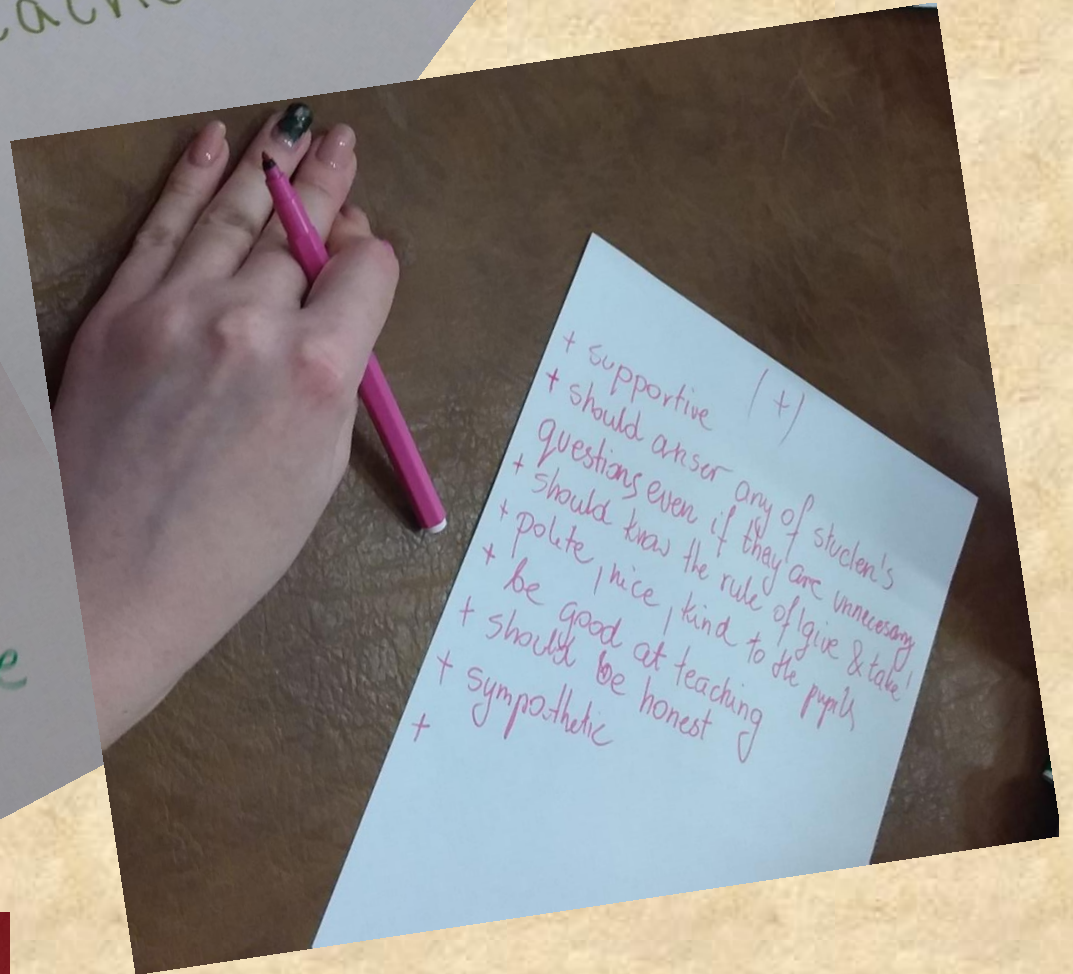 (+)
+ supportive
+ should anser any of studen's
questions even if they are unnecesary
+ should know the rule of 'give & take'
+ polite, nice, kind to the pupils
+ be good at teaching
+ should be honest
+ sympathetic
+
e